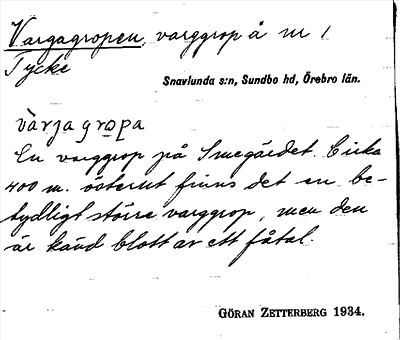 Vargagropen, varggrop å nr 1
Tycke
Snavlunda s:n, Sundbo hd, Örebro län.
värjagropa
En varggrop på Smegärdet. Cirka
400 m. österut finns det en be-
tydligt större varggrop, men den
är känd blott av ett fåtal.
GÖRAN ZETTERBERG 1934.